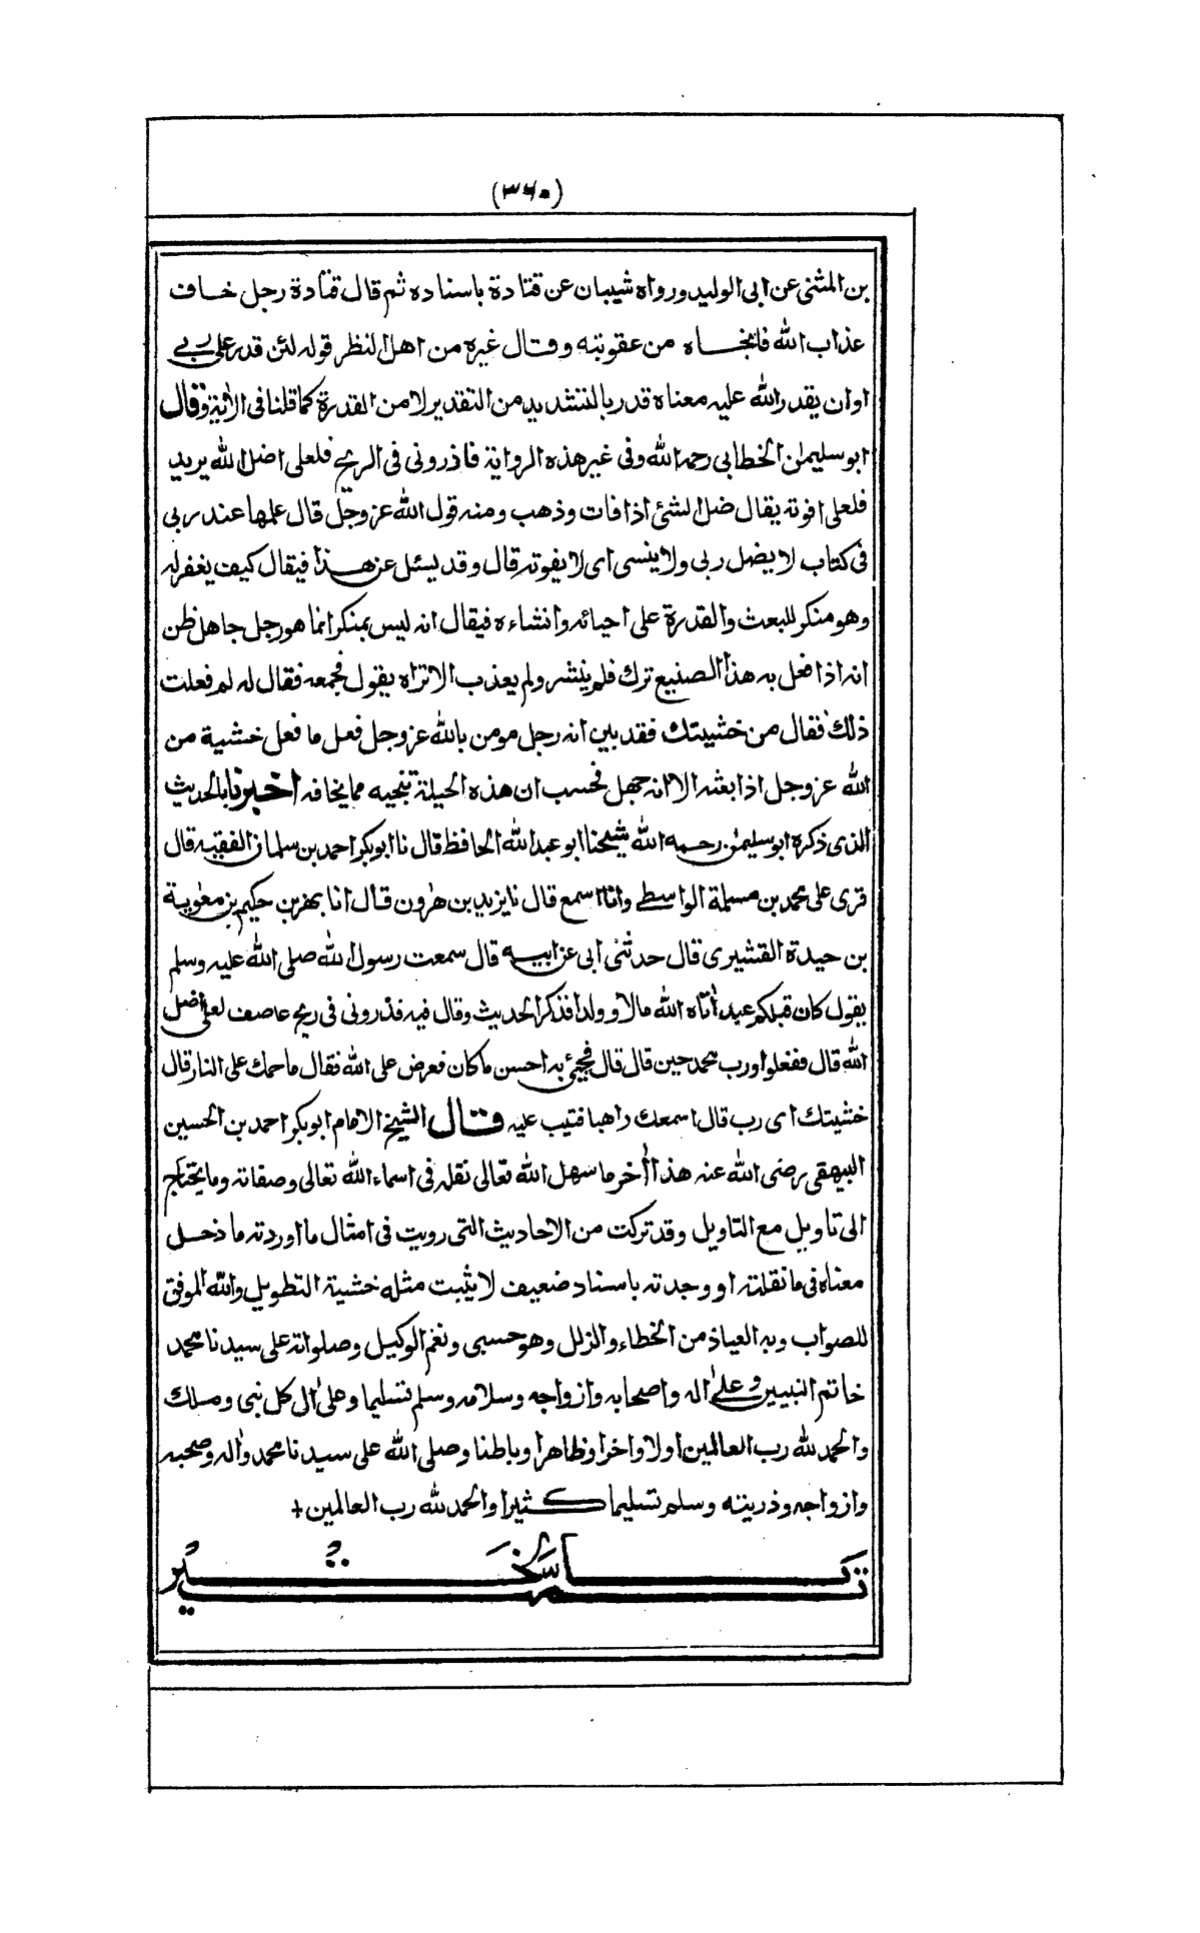 (٣٦٠)
بن المثنى عن ابى الوليد ورواه شيبان عن قتادة باسناده ثم قال قتادة رجل خاف
عذاب الله فانجاه من عقوبته وقال غيره من اهل النظر قوله لئن قدر على ربى
اوان يقدر الله عليه معناه قدر بالتشديد من التقدير لا من القدرة كما قلنا فى الآية وقال
ابو سليمٰن الخطابى رحمه الله وفى غير هذه الرواية فاذرونى فى الريح فلعلى اضل الله يريد
فلعلى افوته يقال ضل الشئ اذا فات وذهب ومنه قول الله عزوجل قال علمها عند ربى
فى كتاب لا يضل ربى ولا ينسى اى لا يفوته قال وقد يسئل عن هذا فيقال كيف يغفر له
وهو منكر للبعث والقدرة على احيائه وانشاءه فيقال انه ليس بمنكر انما هو رجل جاهل ظن
انه اذا فعل به هذا الصنيع ترك فلم ينشر ولم يعذب الا تراه يقول فجمعه فقال له لم فعلت
ذلك فقال من خشيتك فقد بين انه رجل مومن بالله عزوجل فعل ما فعل خشية من
الله عزوجل اذا بعثه الا انه جهل فحسب ان هذه الحيلة تنجيه مما يخافه اخبرنا بالحديث
الذى ذكره ابو سليمٰن رحمه الله شيخنا ابو عبد الله الحافظ قال نا ابوبكر احمد بن سلمان الفقيه قال
قرى على محمد بن مسلمة الواسطى وانا اسمع قال نا يزيد بن هٰرون قال انا بهز بن حكيم بن معٰوية
بن حيدة القشيرى قال حدثنى ابى عن ابيه قال سمعت رسول الله صلى الله عليه وسلم
يقول كان قبلكم عبد اتاه الله مالا وولدا فذكر الحديث وقال فيه فذرونى فى ريح عاصف لعلى اضل
الله قال ففعلوا ورب محمد حين قال قال فجيئ به احسن ما كان فعرض على الله فقال ما حمك على النار قال
خشيتك اى رب قال اسمعك راهبا فتيب عليه قال الشيخ الامام ابوبكر احمد بن الحسين
البيهقى رضى الله عنه هذا آخر ما سهل الله تعالى نقله فى اسماء الله تعالى وصفاته وما يحتاج
الى تاويل مع التاويل وقد تركت من الاحاديث التى رويت فى امثال ما اوردته ما دخل
معناه فى ما نقلته او وجدته باسناد ضعيف لا يثبت مثله خشية التطويل والله الموفق
للصواب وبه العياذ من الخطاء والزلل وهو حسبى ونعم الوكيل وصلواته على سيدنا محمد
خاتم النبيين وعلى اله واصحابه وازواجه وسلامه وسلم تسليما وعلى ال كل نبى وملك
والحمد لله رب العالمين اولا واخرا وظاهرا وباطنا وصلى الله على سيدنا محمد واله وصحبه
وازواجه وذريته وسلم تسليما كثيرا والحمد لله رب العالمين +